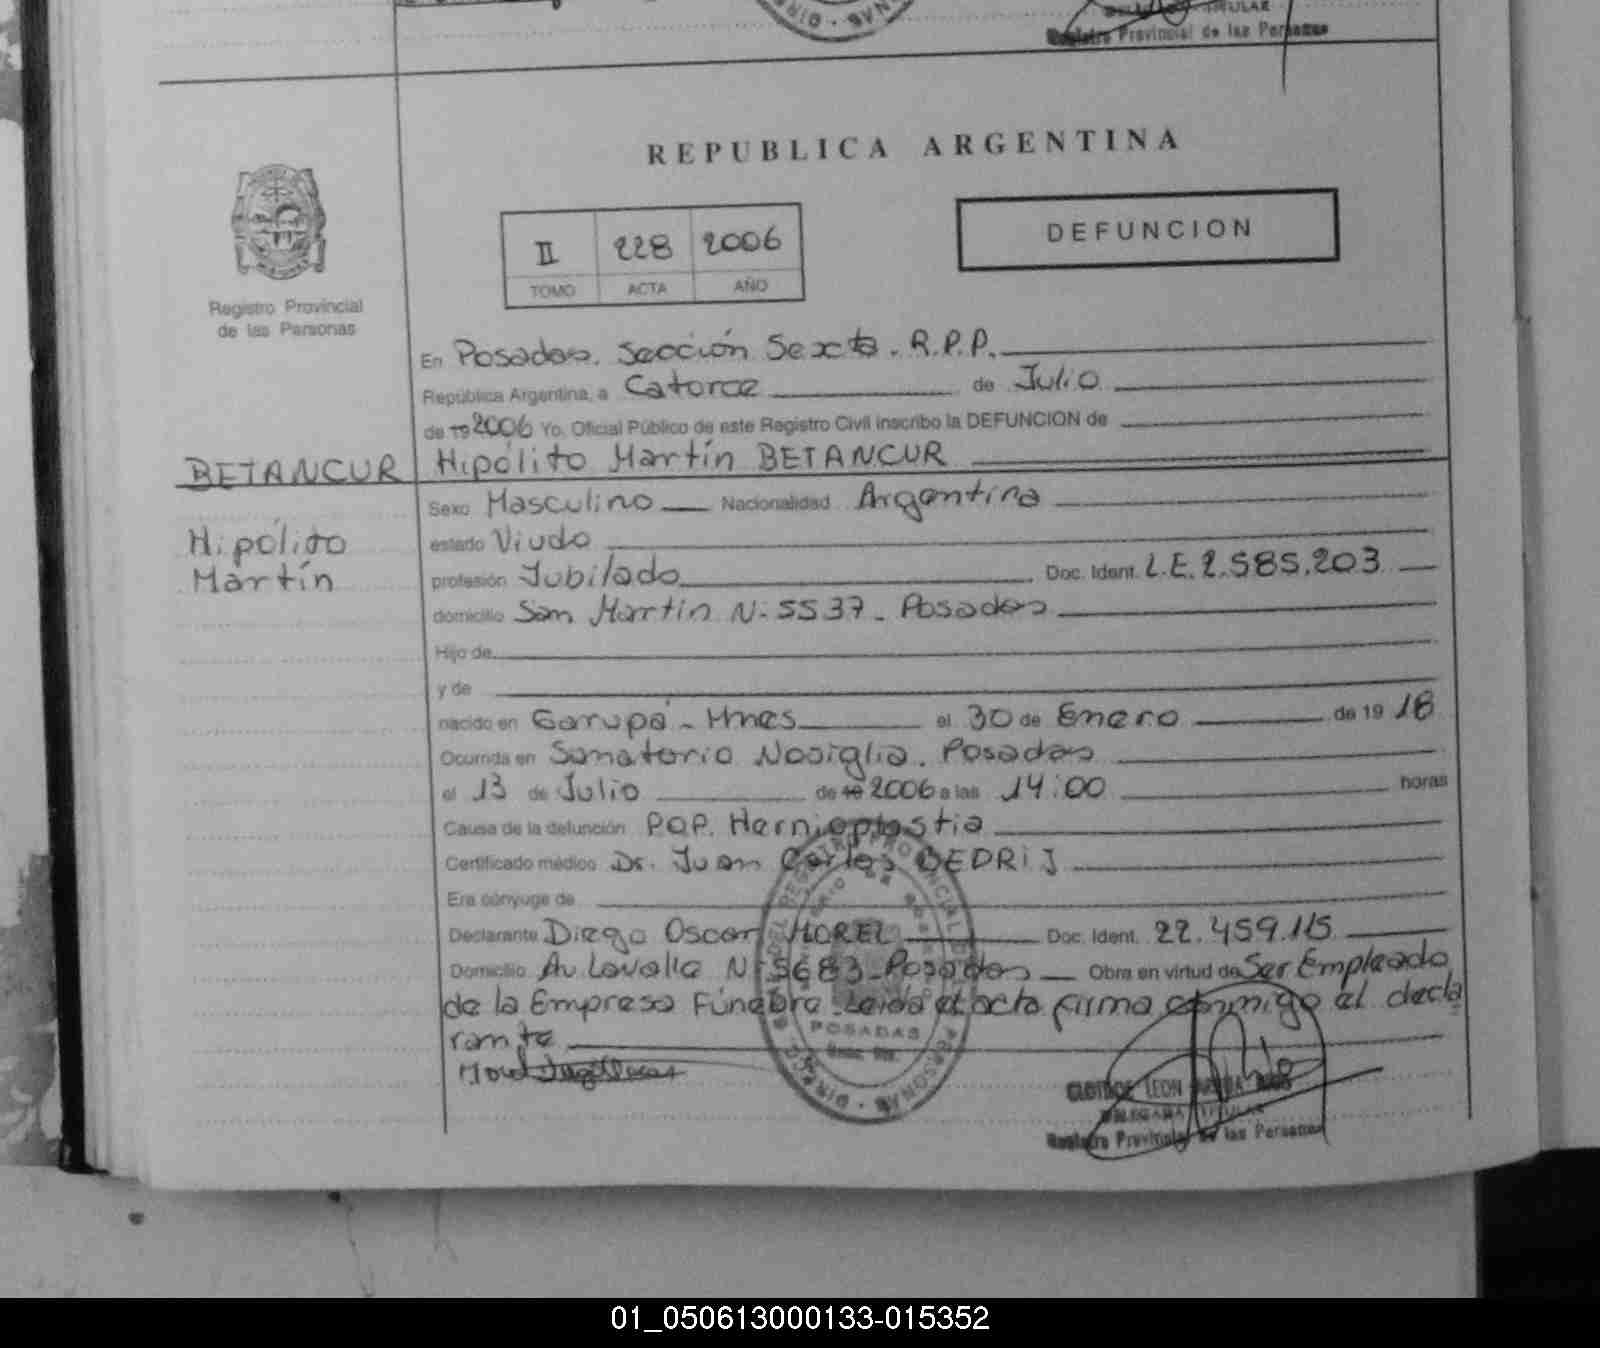 TITULAR
Registro Provincial de las Personas
REPUBLICA ARGENTINA
II 228 2006
TOMO ACTA AÑO
DEFUNCION
Registro Provincial
de las Personas
En Posadas. Sección Sexta. R.P.P.
República Argentina, a Catorce de Julio
de 19 2006 Yo, Oficial Público de este Registro Civil inscribo la DEFUNCION de
BETANCUR Hipólito Martín BETANCUR
Sexo Masculino Nacionalidad Argentina
Hipólito
Martín
estado Viudo
profesión Jubilado Doc. Ident. L.E. 2.585.203
domicilio San Martín N: 5537 - Posadas
Hijo de
y de
nacido en Garupá - Mnes el 30 de Enero de 19 18
Ocurrida en Sanatorio Nosiglia. Posadas
el 13 de Julio de 19 2006 a las 14:00 horas
Causa de la defunción POP. Hernioplastia
Certificado médico Dr. Juan Carlos BEDRIJ
Era cónyuge de
Declarante Diego Oscar MOREL Doc. Ident. 22.459.115
Domicilio Av Lavalle N: 5683 - Posadas Obra en virtud de Ser Empleado
de la Empresa Fúnebre. Leída el acta firma conmigo el decla
rante
POSADAS
LEON
DELEGADA TITULAR
Registro Provincial de las Personas
01_050613000133-015352